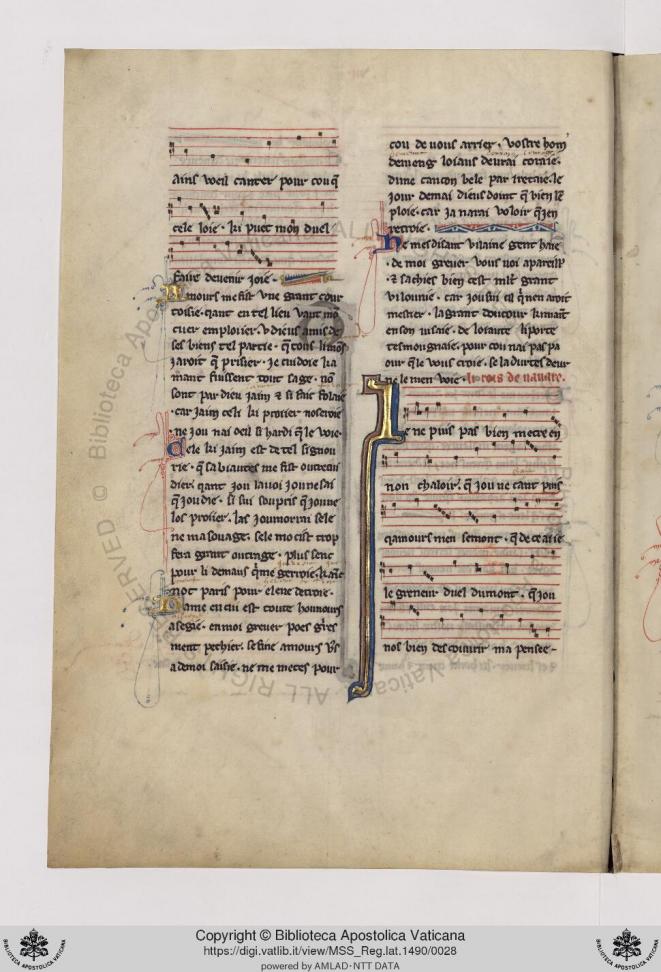 ains voeil canter pour cou q̃
cele loie · ki puet mon duel
faire devenir joie ·
Amours me fist vne grant cour
toisie · qant en tel lieu vaut mō
cuer emploiier · v dieus a mis de
ses biens tel partie · q̃ tous li mōs
j aroit q̃ prisier · Je cuidoie ka
mant fuissent tout sage · nō
sont par dieu jaim & si fais folaie
· car jaim celi ki proiier noseroie
ne jou nai oeil si hardi q̃ le voie ·
Cele ki jaim est de tel signou
rie · q̃ sa biautes me fist outrecui
dier · qant jou la voi jou ne sai
q̃ jou die · si sui soupris q̃ jou ne
los proiier · las jou morrai se le
ne ma souage · se le mocist trop
fera grant outrage · plus sent
pour li de maus
not paris pour elene de troie ·
Dame en qui est toute hounours
asegie · en moi grever poes
ment pechier · se fine amours
a de moi saisie · ne me metes pour
cou de vous arrier · vostre hom
demeng loiaus
dune cancon bele par
jour de mai dieus doint q̃ bien
ploie · car ja narai voloir q̃ jen
recroie ·
Ne mesdisant vilaine gent haie
· de moi grever vous voi apareill
· & sachies bien cest mlt grant
vilounie · car jou sui cil q̃ nen aroit
mestier · la grant doucour
en son visaie · de loiaute li porte
tesmoignaie · pour cou nai pas pa
our q̃ le vous croie · se la durtes
ne le men voie · li rois de navare ·
Je ne puis pas bien metre en
non chaloir · q̃ jou ne cant puis
q̃ amours men semont · q̃ de ce ai ie
le greneur duel du mont · q̃ jou
nos bien descouvrir ma pensee -
BIBLIOTECA APOSTOLICA VATICANA
Copyright © Biblioteca Apostolica Vaticana
https://digi.vatlib.it/view/MSS_Reg.lat.1490/0028
powered by AMLAD·NTT DATA
BIBLIOTECA APOSTOLICA VATICANA